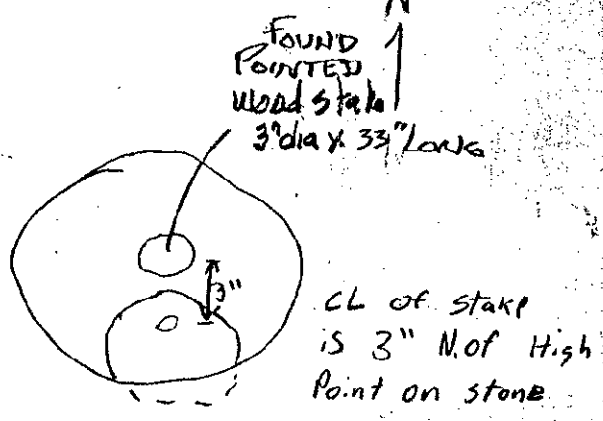 N
FOUND
POINTED
Wood stake
3"dia x 33" Long
3"
CL of stake
is 3" N. of High
Point on stone